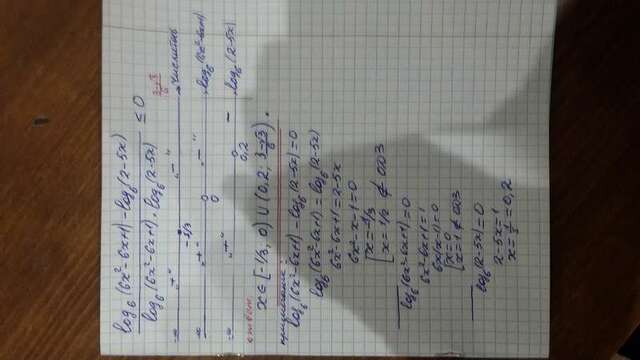 log₆(6x²-6x+1) - log₆(2-5x)
log₆(6x²-6x+1) · log₆(2-5x) ≤ 0
"+" -1/3 "-" (3-√3)/6 числитель
"+" 0 "-" log₆(6x²-6x+1)
"+" 0,2 - log₆(2-5x)
ответ
x∈[-1/3; 0) ∪ (0,2; (3-√3)/6).
примечание:
log₆(6x²-6x+1) - log₆(2-5x) = 0
log₆(6x²-6x+1) = log₆(2-5x)
6x²-6x+1 = 2-5x
6x²-x-1=0
[x=-1/3
[x=1/2 ∉ ОДЗ
log₆(6x²-6x+1)=0
6x²-6x+1=1
6x(x-1)=0
[x=0
[x=1 ∉ ОДЗ
log₆(2-5x)=0
2-5x=1
x=1/5=0,2